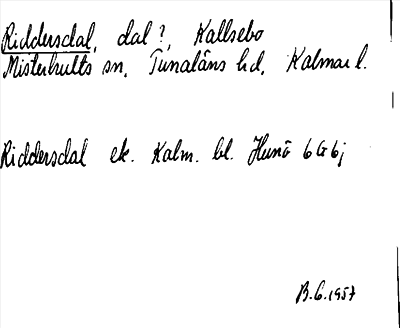 Riddersdal, dal?, Kallsebo
Misterhults sn, Tunaläns hd, Kalmar l.
Riddersdal ek. Kalm. bl. Hunö 6 G 6 j
B.G. 1957